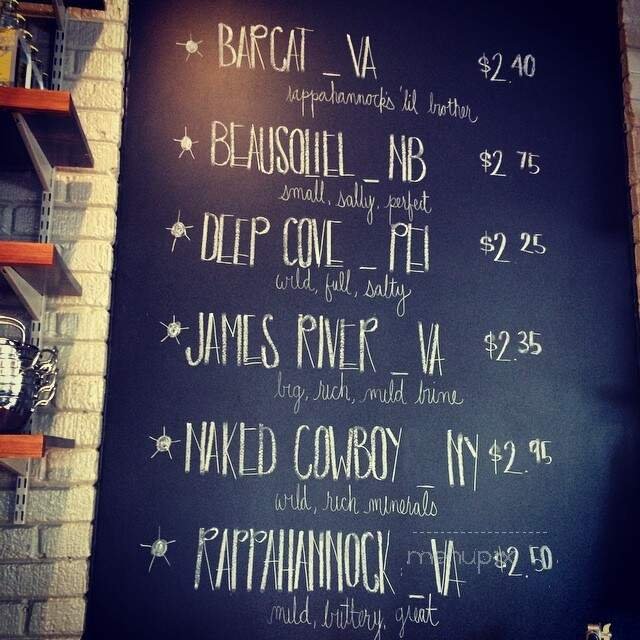 BARCAT _ VA $2.40
rappahannock's 'lil brother
BEAUSOLIEL _ NB $2.75
small, salty, perfect
DEEP COVE _ PEI $2.25
wild, full, salty
JAMES RIVER _ VA $2.35
big, rich, mild brine
NAKED COWBOY _ NY $2.95
wild, rich minerals
RAPPAHANNOCK _ VA $2.50
mild, buttery, great